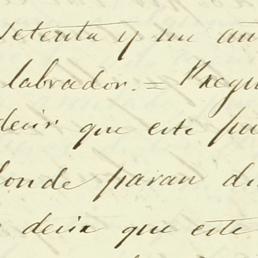 setenta y un añ
labrador. = Pregu
decir que este pu
donde paran di
decir que este